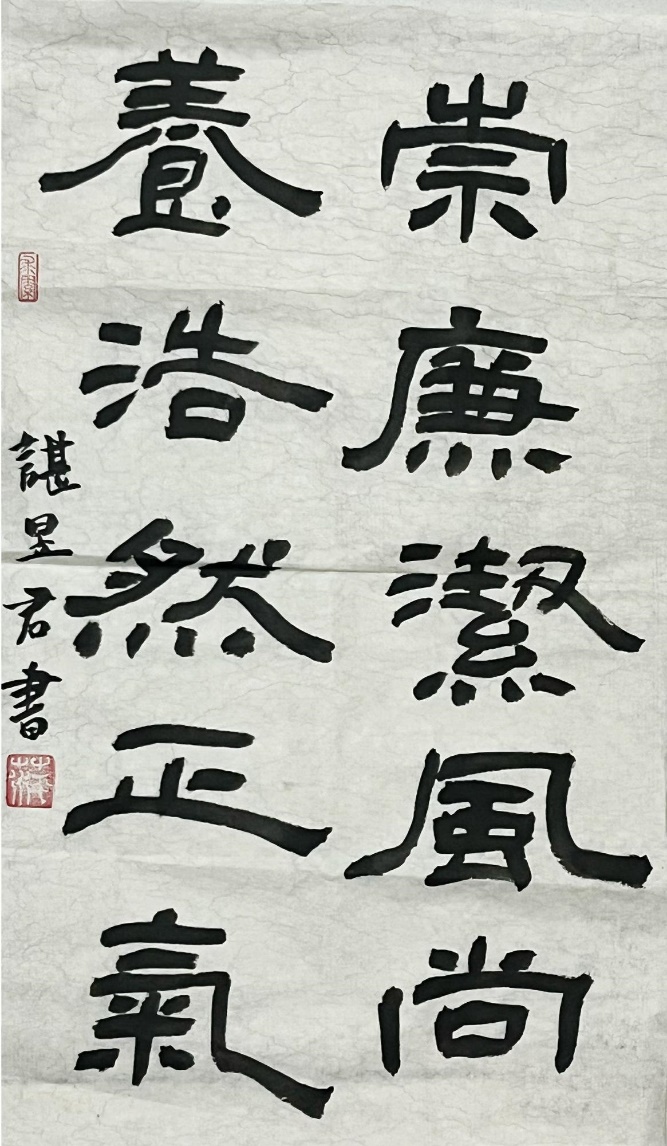 崇廉潔風尚
養浩然正氣
諶昱君書